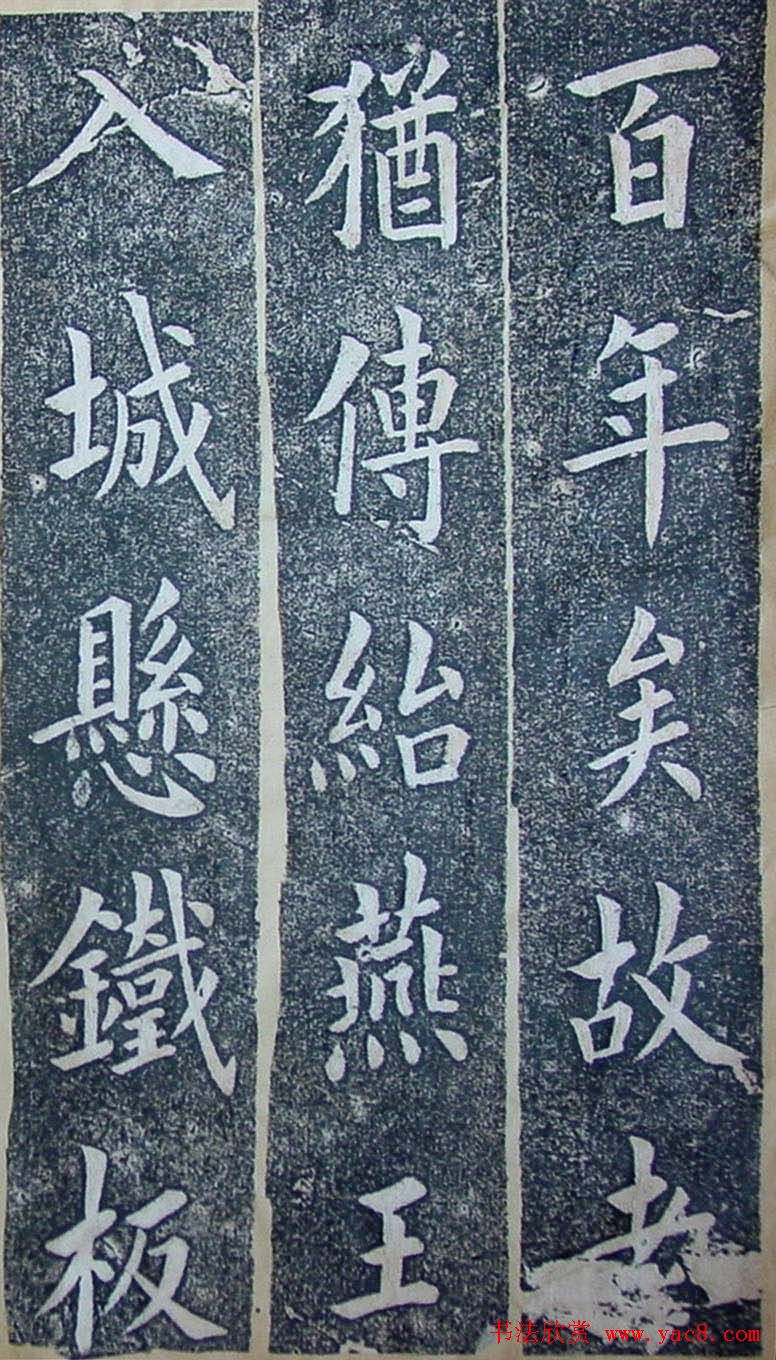 百年矣故老
猶傳紿燕王
入城懸鐵板
书法欣赏 www.yac8.com